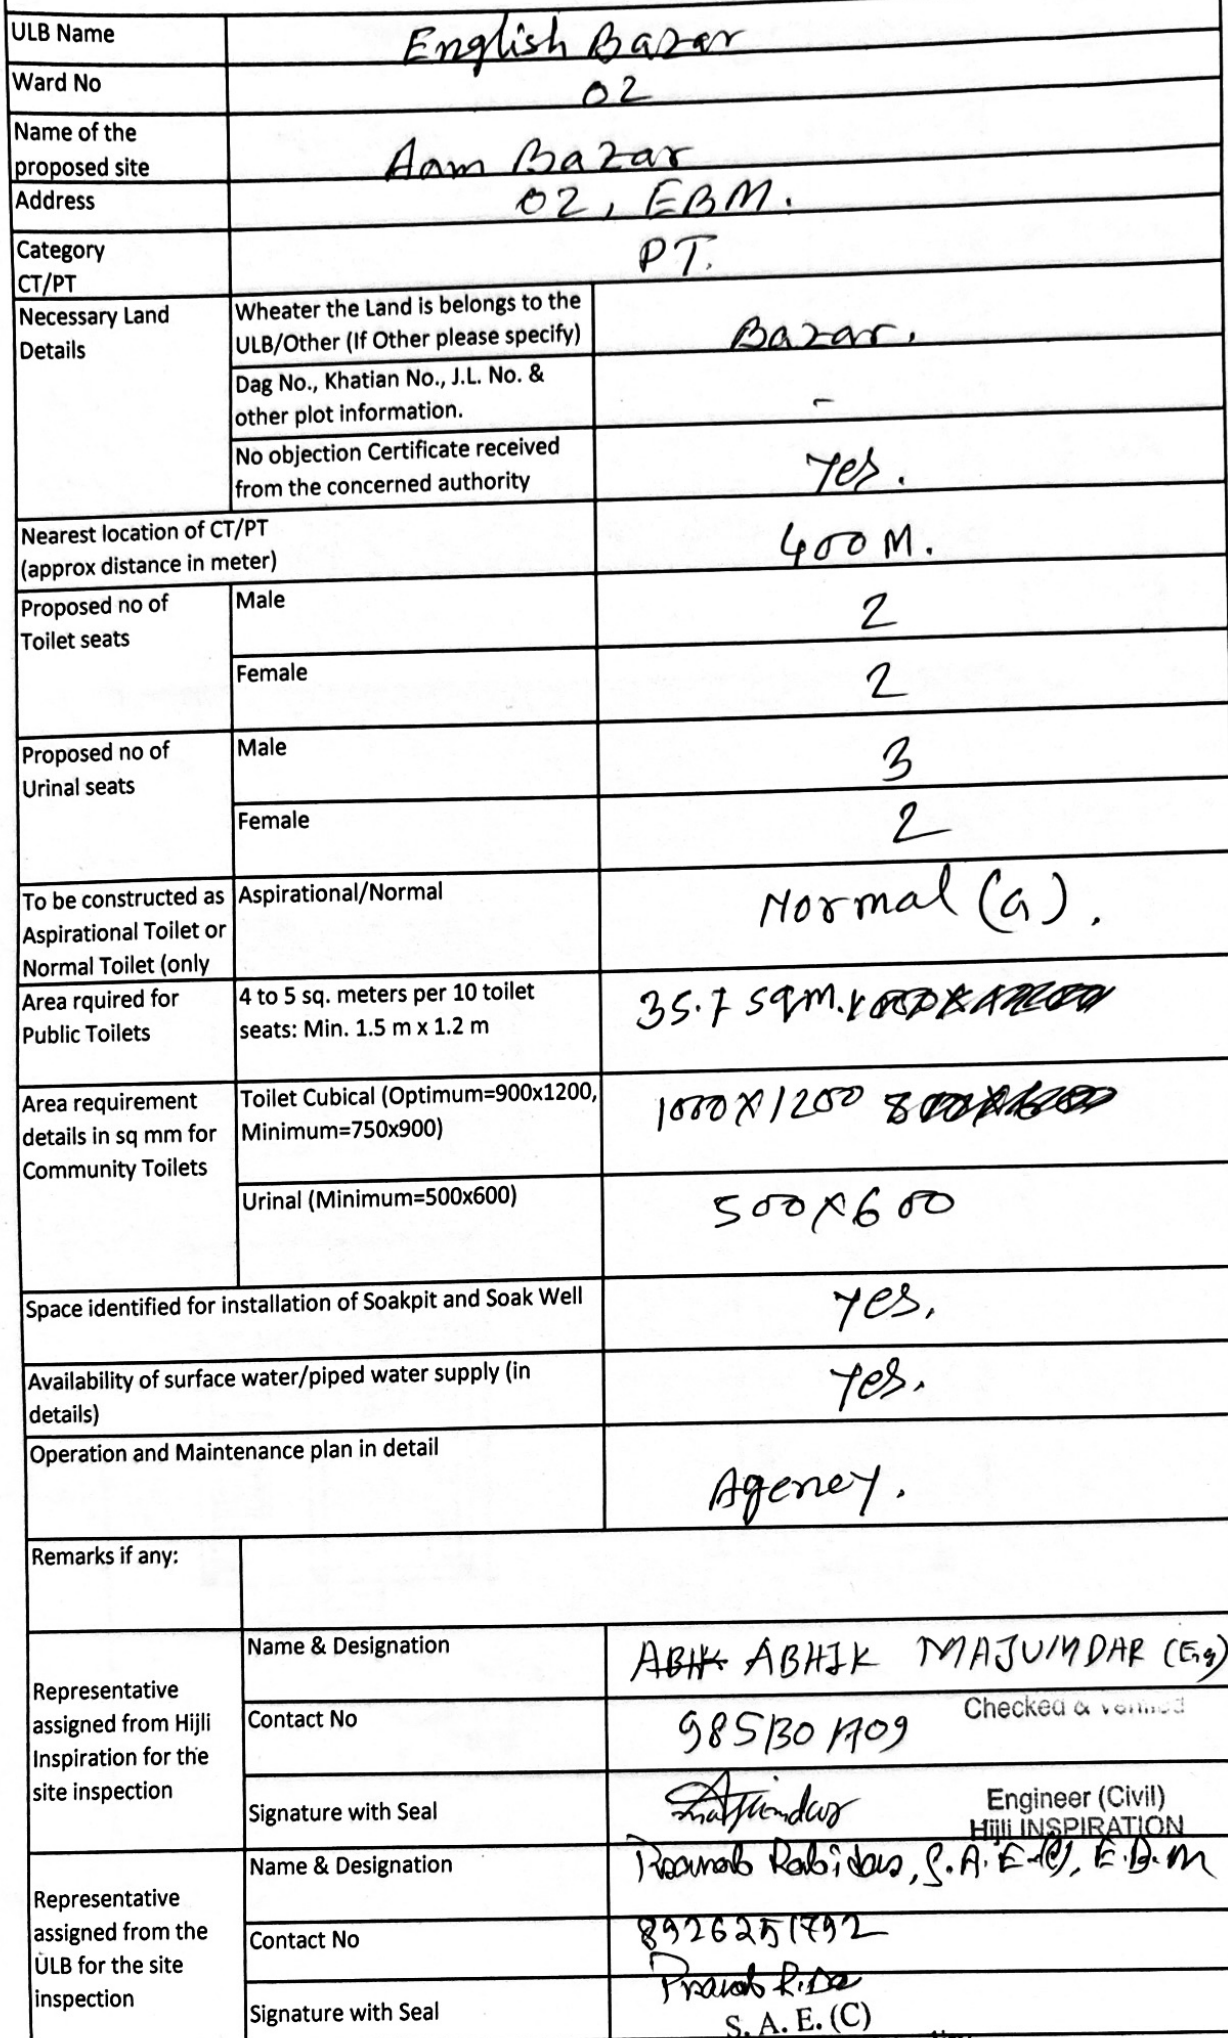 ULB Name English Bazar
Ward No 02
Name of the
proposed site Aam Bazar
Address 02, EBM.
Category
CT/PT PT.
Necessary Land
Details
Wheater the Land is belongs to the
ULB/Other (If Other please specify) Bazar.
Dag No., Khatian No., J.L. No. &
other plot information. -
No objection Certificate received
from the concerned authority Yes.
Nearest location of CT/PT
(approx distance in meter) 400 M.
Proposed no of
Toilet seats
Male 2
Female 2
Proposed no of
Urinal seats
Male 3
Female 2
To be constructed as
Aspirational Toilet or
Normal Toilet (only
Aspirational/Normal Normal (a).
Area rquired for
Public Toilets
4 to 5 sq. meters per 10 toilet
seats: Min. 1.5 m x 1.2 m
35.7 sqm.
Area requirement
details in sq mm for
Community Toilets
Toilet Cubical (Optimum=900x1200,
Minimum=750x900)
1000X1200
Urinal (Minimum=500x600) 500X600
Space identified for installation of Soakpit and Soak Well Yes.
Availability of surface water/piped water supply (in
details) Yes.
Operation and Maintenance plan in detail
Agency.
Remarks if any:
Representative
assigned from Hijli
Inspiration for the
site inspection
Name & Designation ABHIK MAJUMDAR (Eng)
Contact No 9851301709
Checked &
Signature with Seal
Engineer (Civil)
Hijli INSPIRATION
Representative
assigned from the
ULB for the site
inspection
Name & Designation Rabidas, S.A.E (C), E.B.M
Contact No 8926251792
Signature with Seal
S. A. E. (C)